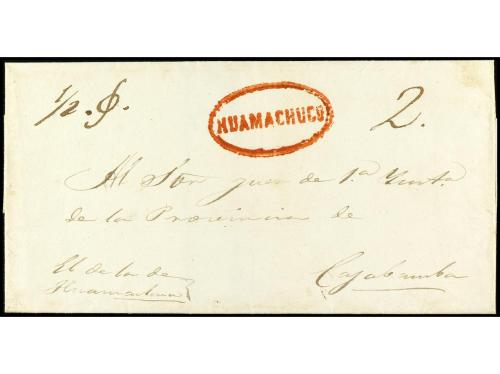 1/2. $.
HUAMACHUCO
2.
Al Sor Juez de 1.a Insta.
de la Provincia de
Cajabamba
El de la de
Huamachuco